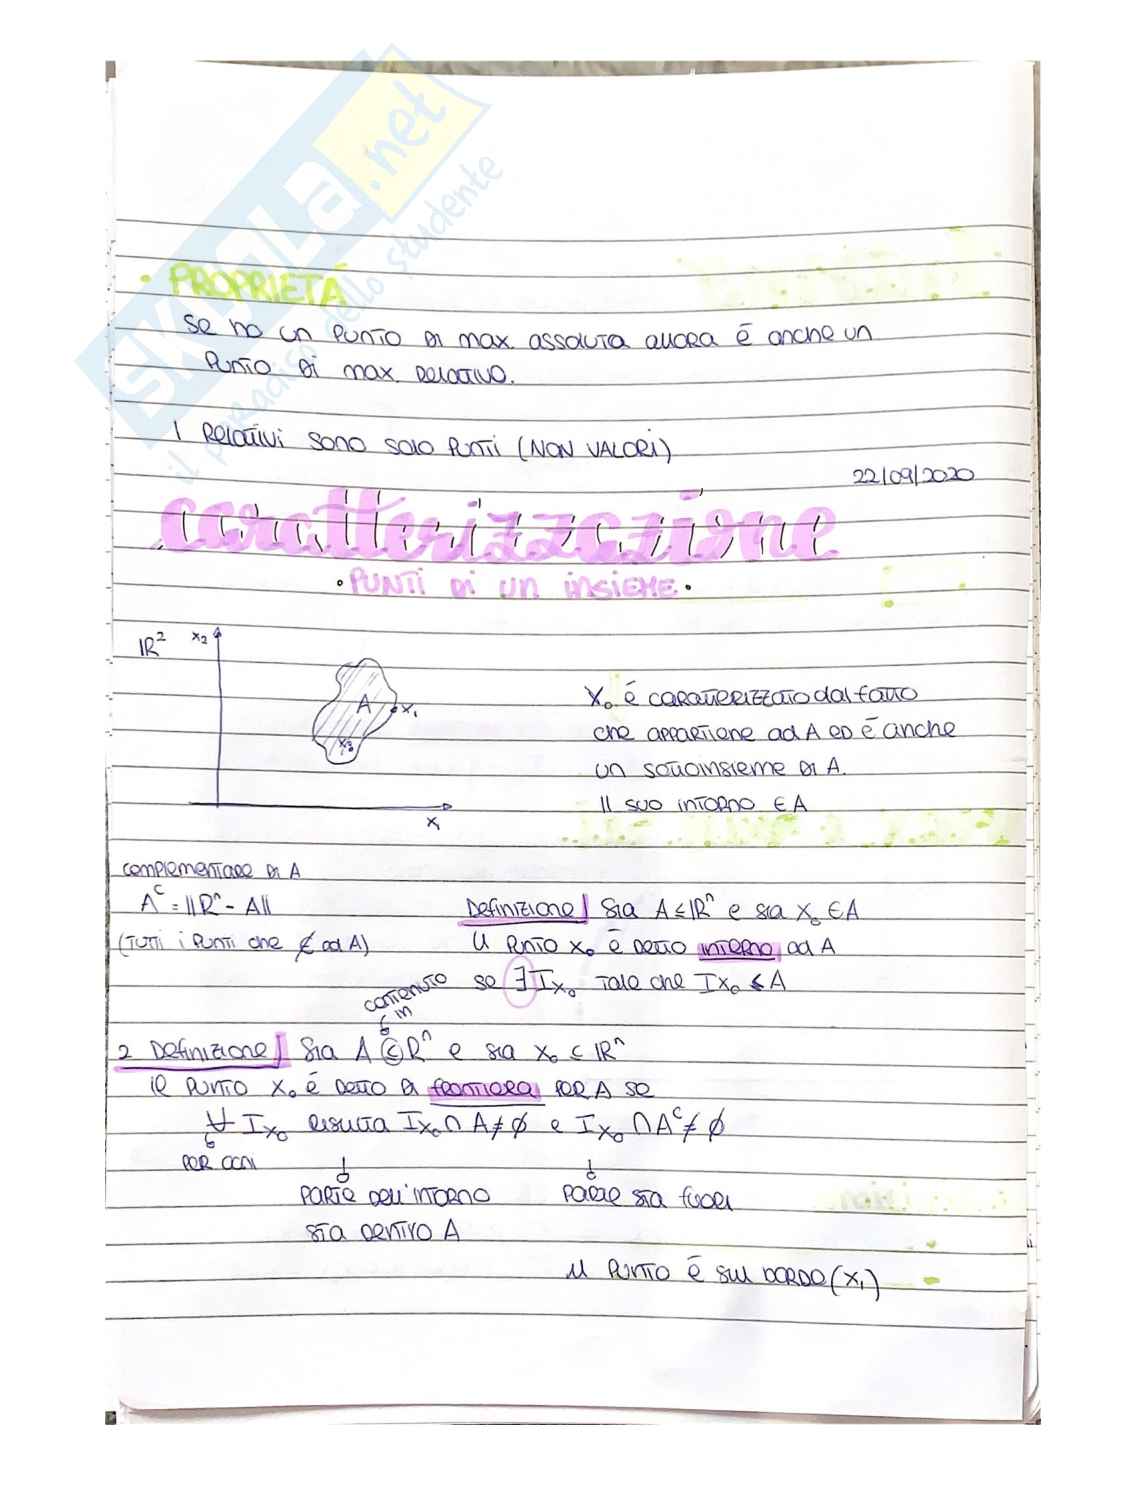 SKUOLA.net
il paradiso dello studente
• PROPRIETÀ
Se ho un punto di max. assoluto allora è anche un
punto di max. relativo.
I relativi sono solo punti (NON VALORI)
22/09/2020
caratterizzazione
• PUNTI DI UN INSIEME •
IR² x₂
A x₁
x₀
x₁
X₀ è caratterizzato dal fatto
che appartiene ad A ed è anche
un sottoinsieme di A.
Il suo intorno ∈ A
complementare di A
Aᶜ = ||Rⁿ - A||
(tutti i punti che ∉ ad A)
Definizione| Sia A ≤ IRⁿ e sia x₀ ∈ A
Il punto x₀ è detto interno ad A
se ∃ Ix₀ tale che Ix₀ ≤ A
contenuto
in
2 Definizione| Sia A ⊆ Rⁿ e sia x₀ ⊂ IRⁿ
il punto x₀ è detto di frontiera per A se
∀ Ix₀ risulta Ix₀ ∩ A ≠ ∅ e Ix₀ ∩ Aᶜ ≠ ∅
per ogni
parte dell'intorno parte sta fuori
sta dentro A
Il punto è sul bordo (x₁)